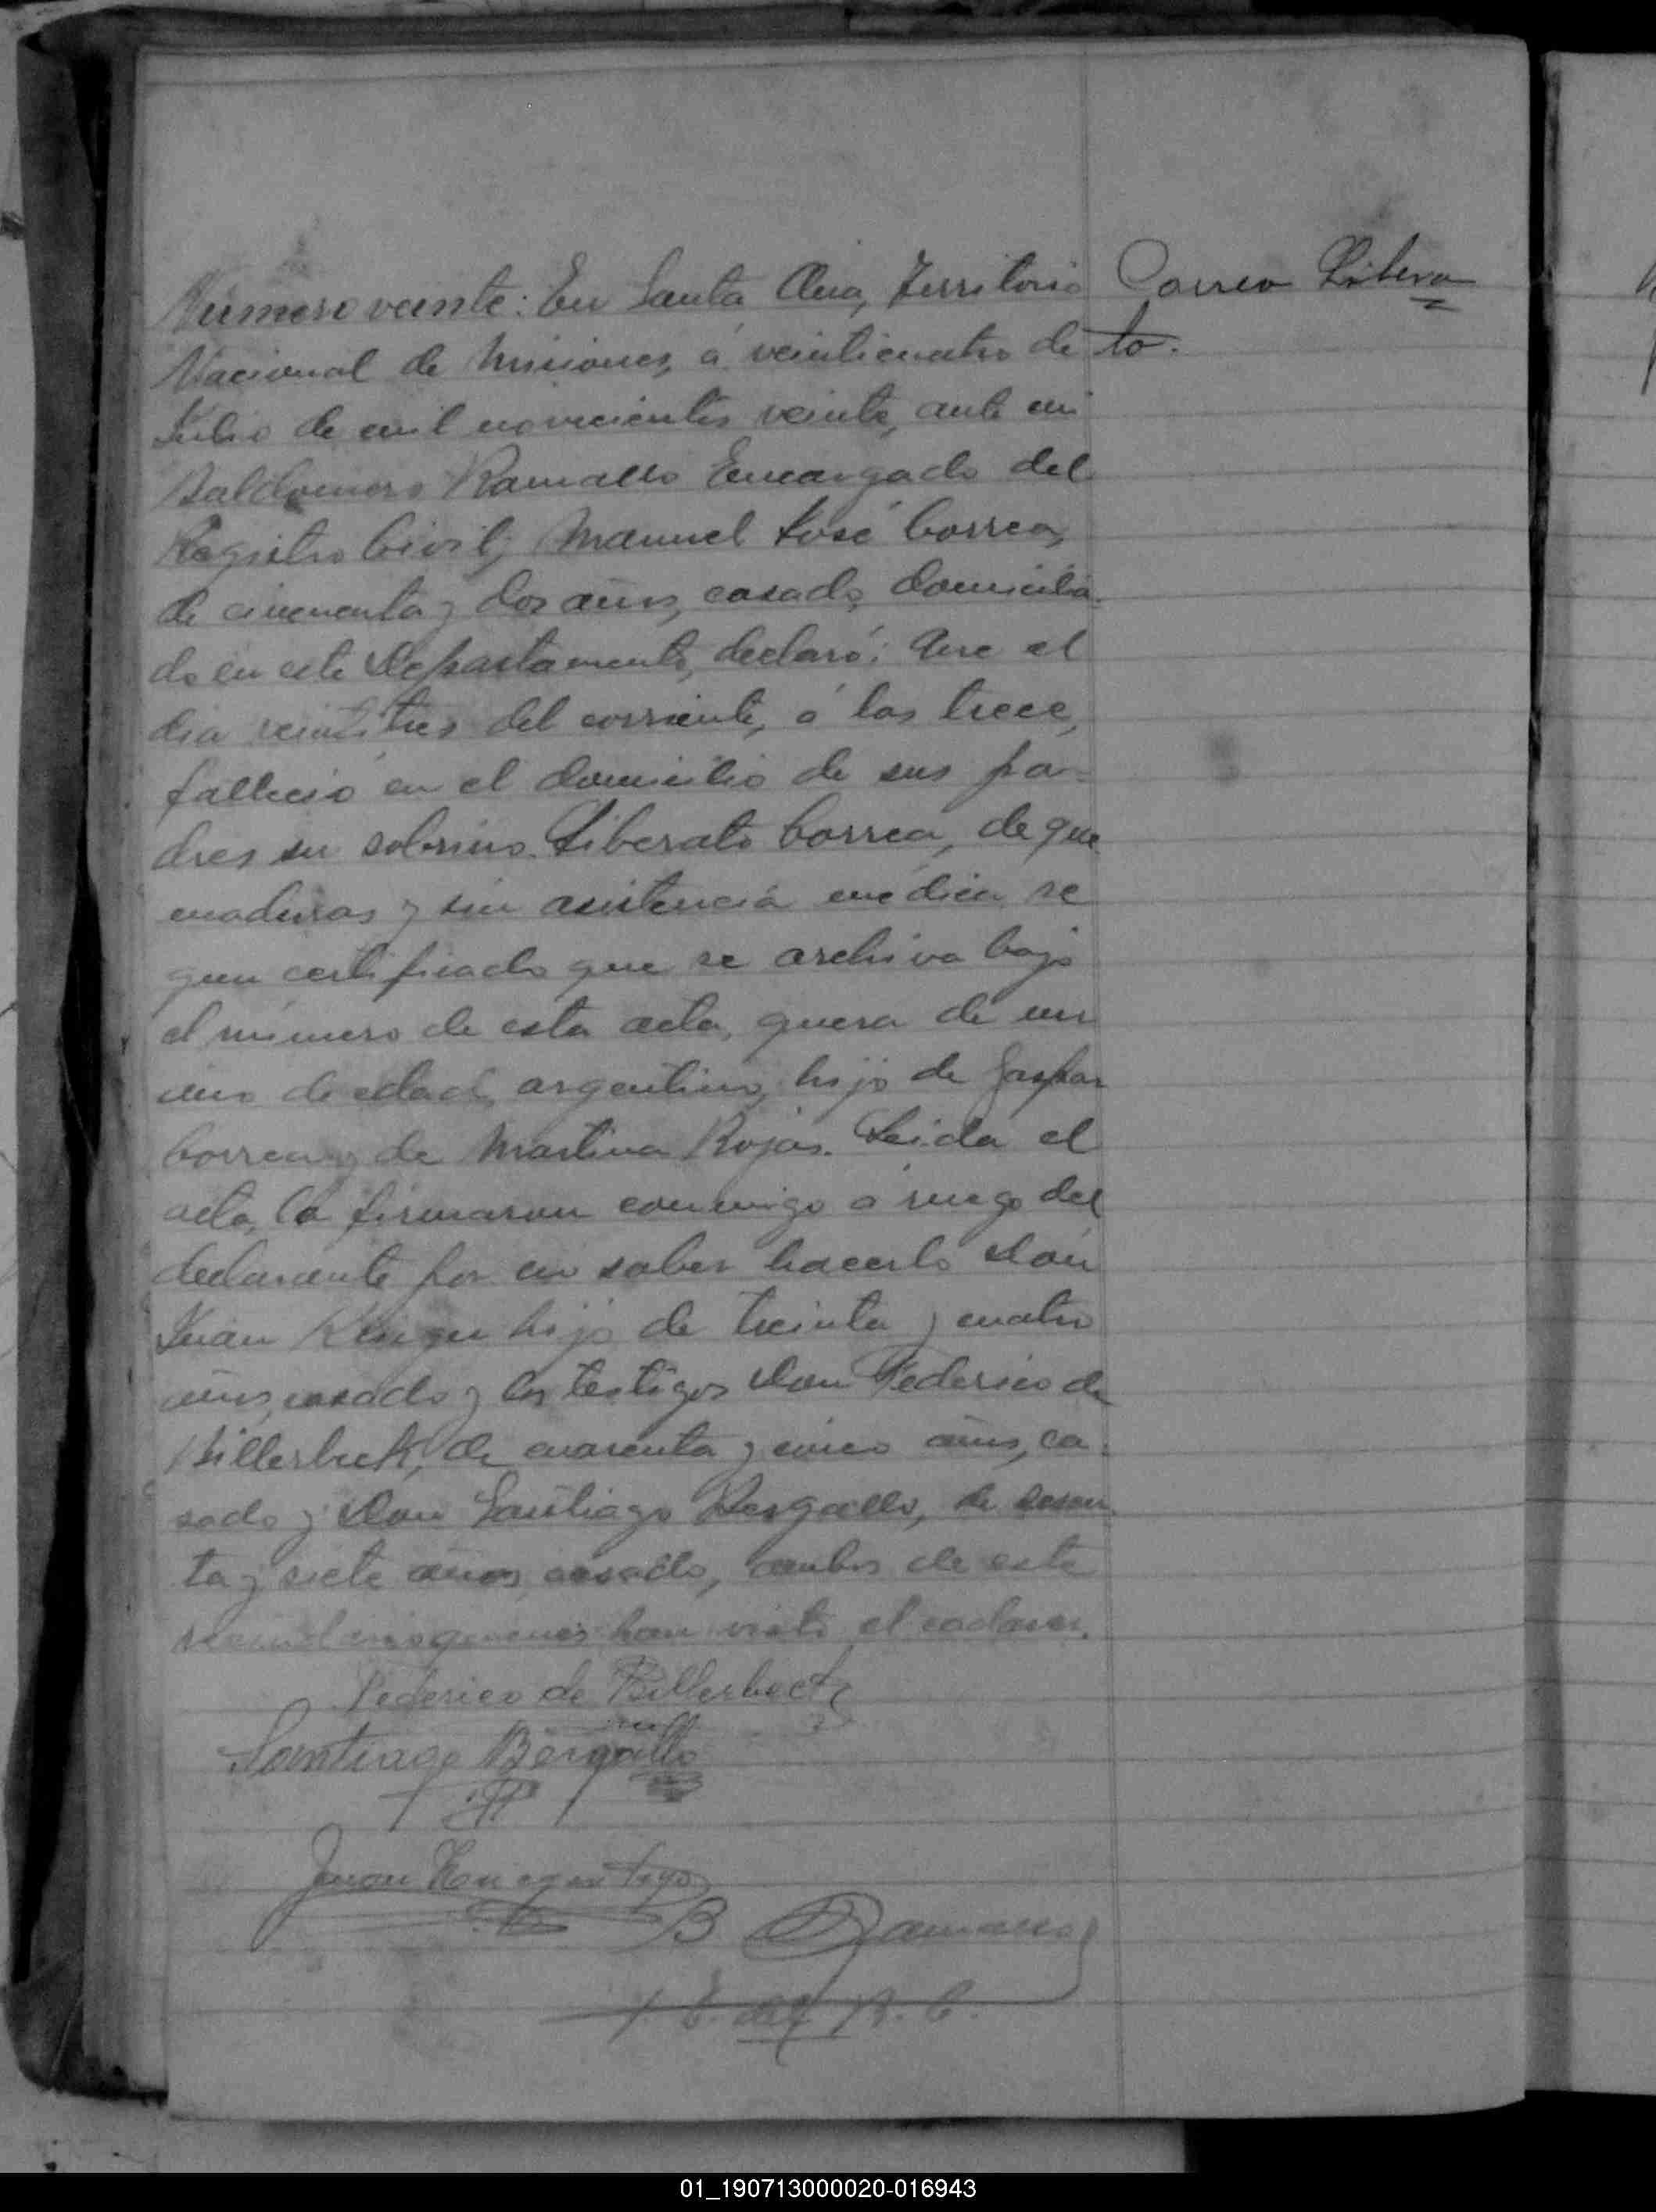 Correa Libera
to.
Número veinte: En Santa Ana, Territorio
Nacional de Misiones, á veinticuatro de
Julio de mil novecientos veinte, ante mi
Baldomero Ramallo Encargado del
Registro Civil; Manuel José Correa,
de cincuenta y dos años, casado, domicilia-
do en este Departamento, declaró: Que el
dia veintitres del corriente, á las trece,
falleció en el domicilio de sus pa-
dres su sobrino Liberato Correa, de que
maduras y sin asistencia médica se
gun certificado que se archiva bajo
el número de esta acta, quera de un
año de edad, argentino, hijo de Gaspar
Correa y de Martina Rojas. Leida el
acta, la firmaron conmigo á ruego del
declarante por no saber hacerlo Don
Juan hijo de treinta y cuatro
años, casado y los testigos Don Federico de
Billerbeck, de cuarenta y cinco años, ca-
sado y Don Santiago Bergallo, de sesen
ta y siete años, casado, ambos de este
quienes han visto el cadaver.
Federico de Billerbeck
Santiago Bergallo
Juan hijo
B Ramallo
E. del R. C.
01_190713000020-016943